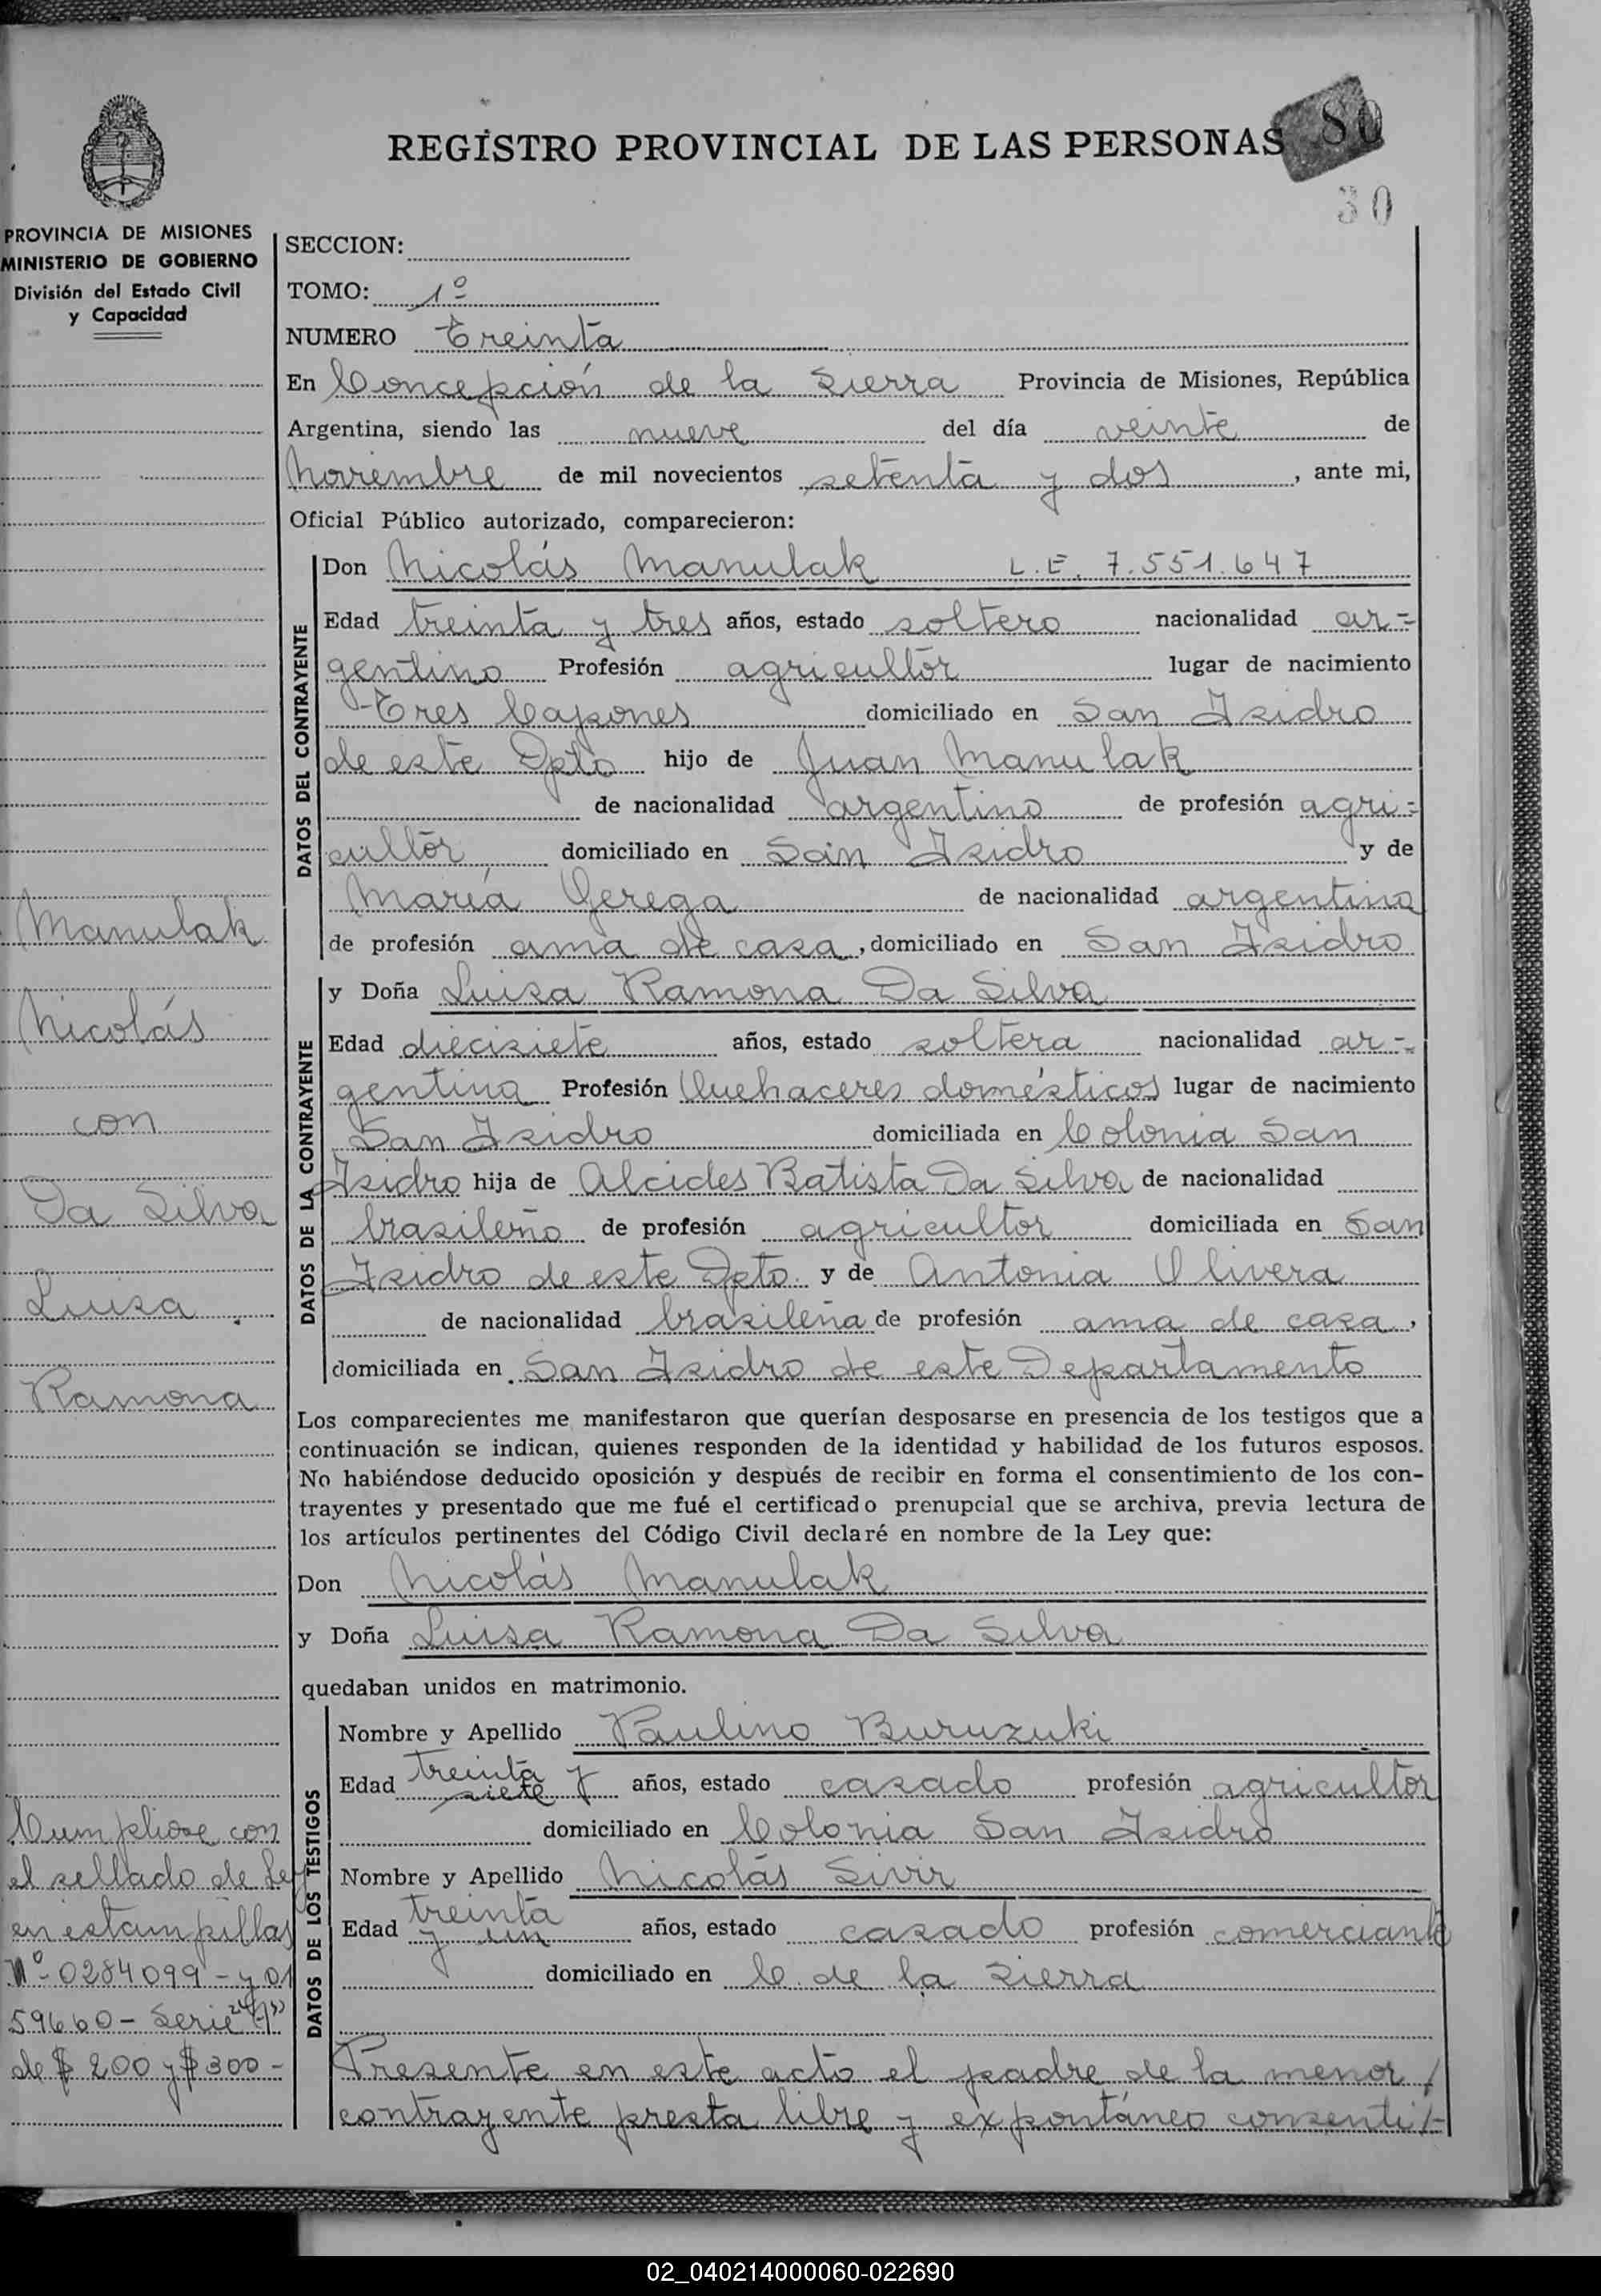 REGISTRO PROVINCIAL DE LAS PERSONAS
80
30
PROVINCIA DE MISIONES
MINISTERIO DE GOBIERNO
División del Estado Civil
y Capacidad
SECCION:
TOMO: 1º
NUMERO Treinta
En Concepción de la Sierra Provincia de Misiones, República
Argentina, siendo las nueve del día veinte de
Noviembre de mil novecientos setenta y dos, ante mi,
Oficial Público autorizado, comparecieron:
DATOS DEL CONTRAYENTE
Don Nicolás Manulak L.E. 7.551.647
Edad treinta y tres años, estado soltero nacionalidad ar=
gentino Profesión agricultor lugar de nacimiento
Tres Capones domiciliado en San Isidro
de este Dpto hijo de Juan Manulak
de nacionalidad argentino de profesión agri=
cultor domiciliado en San Isidro y de
María Gerega de nacionalidad argentina
de profesión ama de casa, domiciliado en San Isidro
DATOS DE LA CONTRAYENTE
y Doña Luisa Ramona Da Silva
Edad diecisiete años, estado soltera nacionalidad ar=
gentina Profesión Quehaceres domésticos lugar de nacimiento
San Isidro domiciliada en Colonia San
Isidro hija de Alcides Batista Da Silva de nacionalidad
brasileño de profesión agricultor domiciliada en San
Isidro de este Dpto. y de Antonia Olivera
de nacionalidad brasileña de profesión ama de casa,
domiciliada en San Isidro de este Departamento
Los comparecientes me manifestaron que querían desposarse en presencia de los testigos que a
continuación se indican, quienes responden de la identidad y habilidad de los futuros esposos.
No habiéndose deducido oposición y después de recibir en forma el consentimiento de los con-
trayentes y presentado que me fué el certificado prenupcial que se archiva, previa lectura de
los artículos pertinentes del Código Civil declaré en nombre de la Ley que:
Don Nicolás Manulak
y Doña Luisa Ramona Da Silva
quedaban unidos en matrimonio.
DATOS DE LOS TESTIGOS
Nombre y Apellido Paulino Buruzuki
Edad treinta y siete años, estado casado profesión agricultor
domiciliado en Colonia San Isidro
Nombre y Apellido Nicolás Sivir
Edad treinta y un años, estado casado profesión comerciante
domiciliado en C. de la Sierra
Presente en este acto el padre de la menor /
contrayente presta libre y expontáneo consenti/-
Manulak
Nicolás
con
Da Silva
Luisa
Ramona
Cumpliose con
el sellado de Ley
en estampillas
Nº-0284099-y 01
59660- Serie
de $ 200 y $ 300-
02_040214000060-022690